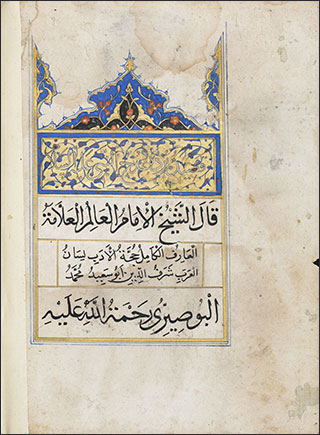 قَالَ الشَّيْخُ الْإِمَامُ الْعَالِمُ الْعَلَّامَةُ
الْعَارِفُ الْكَامِلُ حُجَّةُ الْأَدَبِ لِسَانُ
الْعَرَبِ شَرَفُ الدِّينِ أَبُو سَعِيدٍ مُحَمَّدُ
الْبُوصِيرِيُّ رَحْمَةُ اللَّهِ عَلَيْهِ